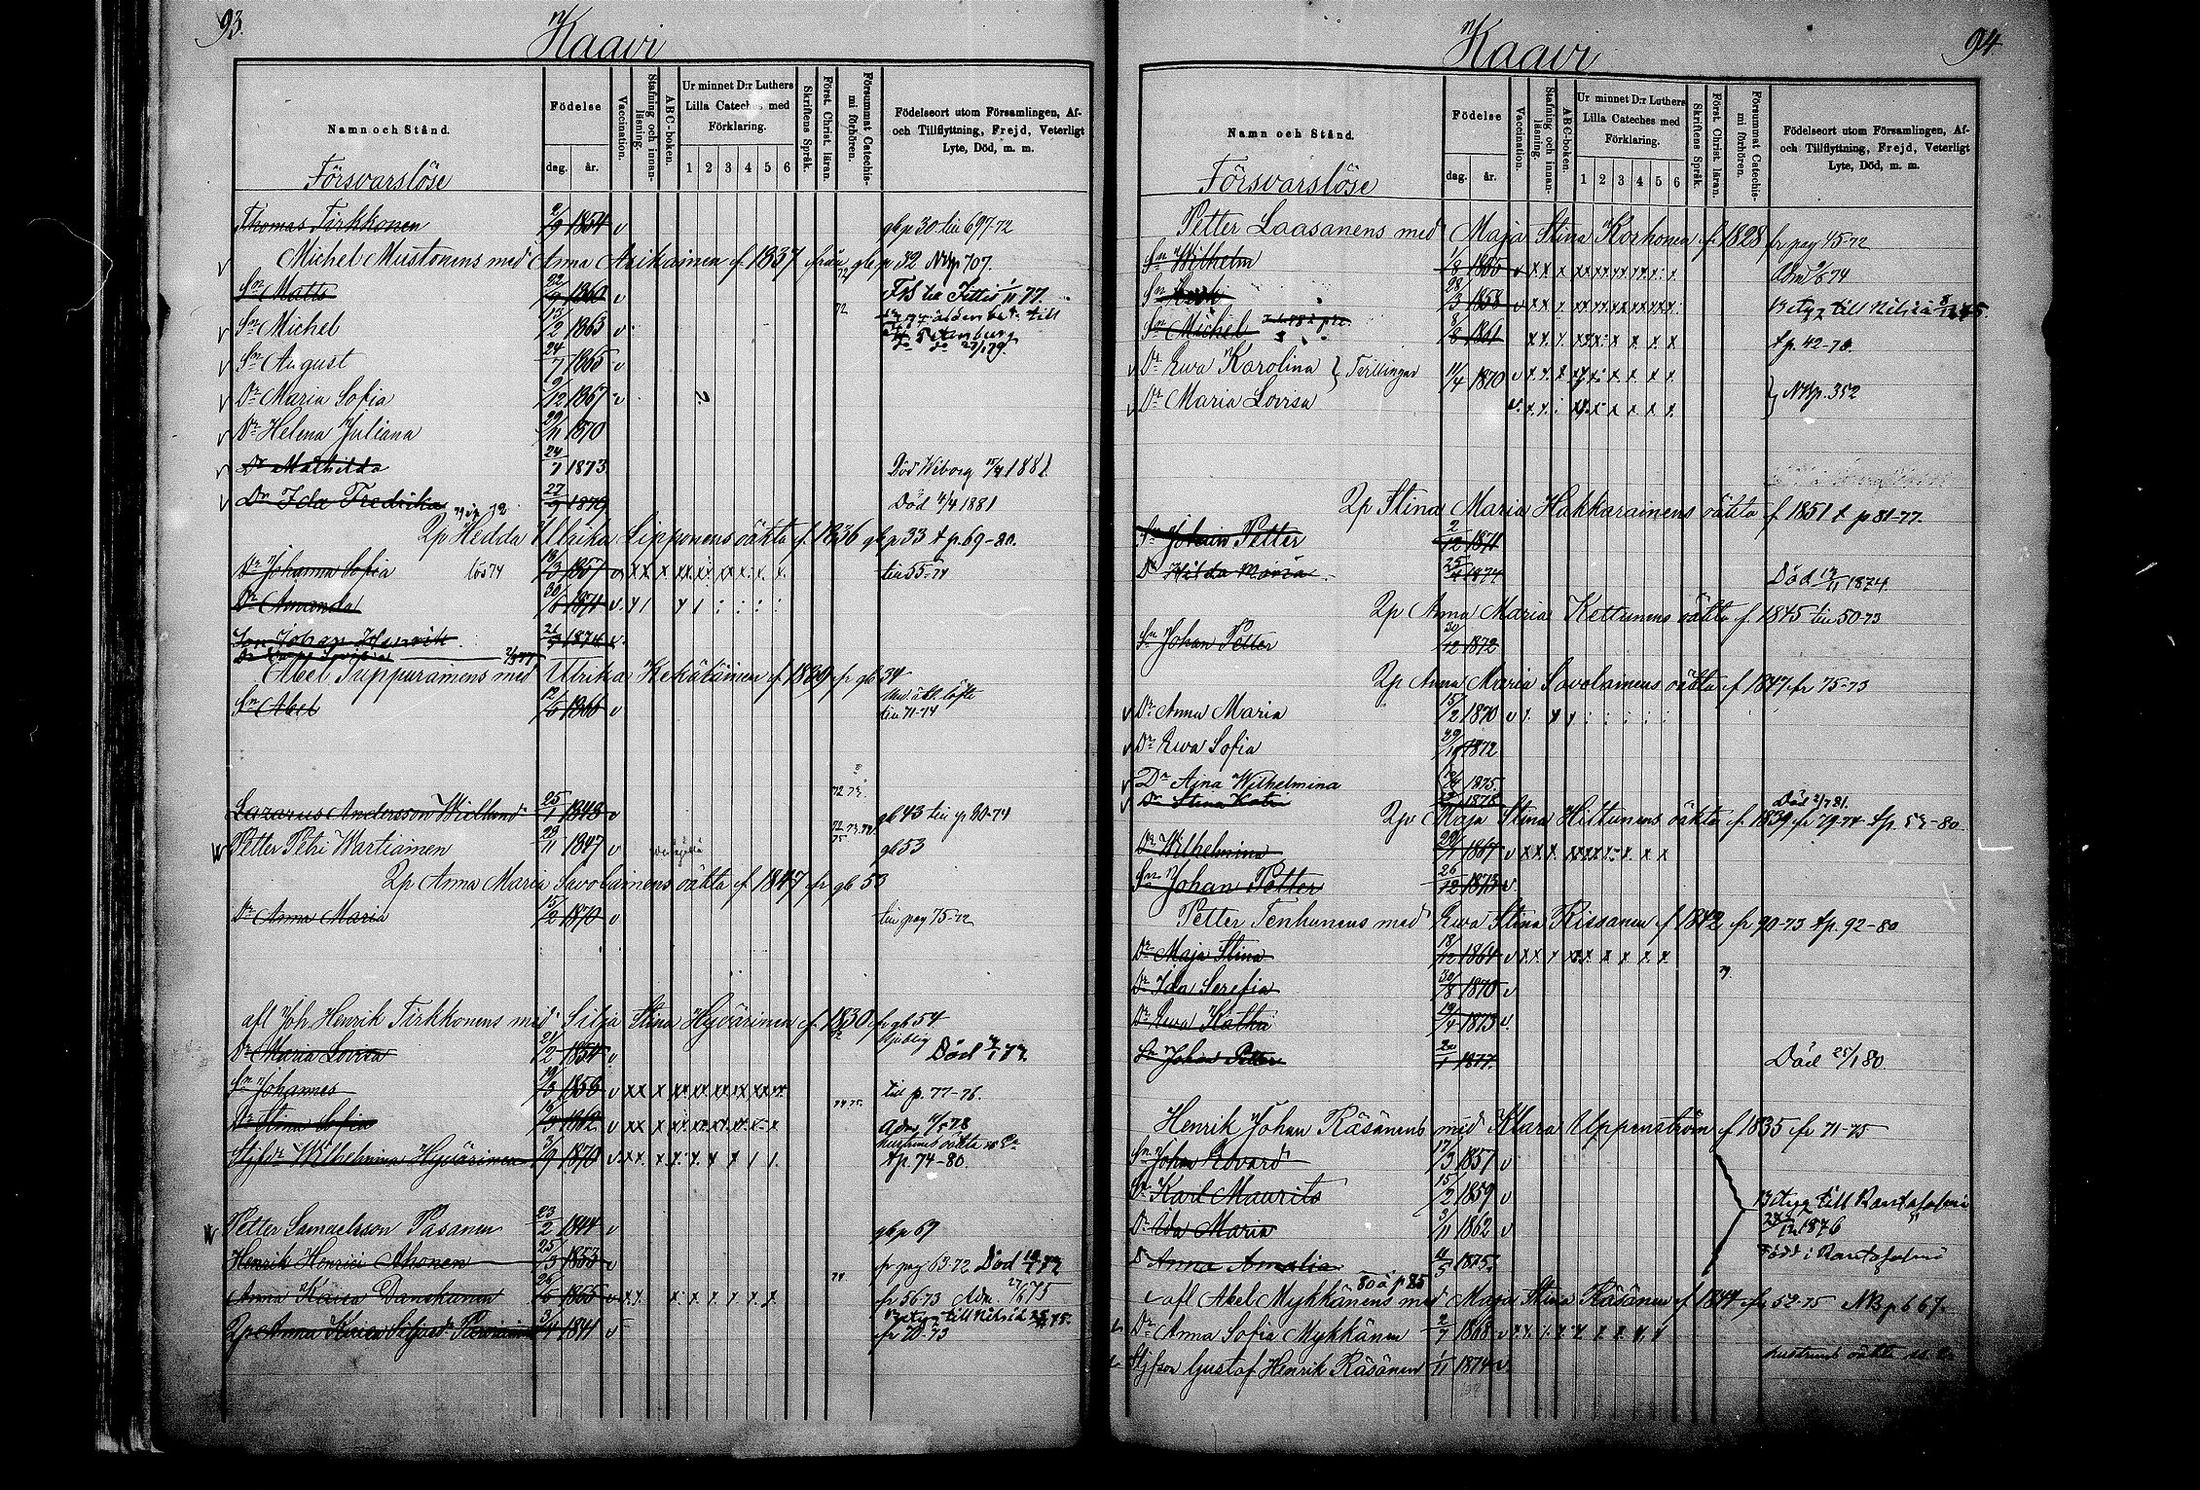 93.
Kaavi
Namn och Stånd.
Födelse
dag.
år.
Vaccination.
Stafning och innan-
läsning.
ABC-boken.
Ur minnet D:r Luthers
Lilla Cateches med
Förklaring.
1 2 3 4 5 6
Skriftens Språk.
Först. Christ. läran.
Försummat Catechis-
mi förhören.
Födelseort utom Församlingen, Af-
och Tillflyttning, Frejd, Veterligt
Lyte, Död, m. m.
Försvarslöse
Thomas Tirkkonen 2/9 1854 v gb p 30 till 697-72
Michel Mustonens med Anna Asikainen f. 1837 från gb p 32 NB p 707.
Sn Matts 22/9 1860 v
Sn Michel 13/2 1863 v
Sn August 24/7 1865 v
Dr Maria Sofia 9/12 1867 v
Dr Helena Juliana 29/11 1870
Dr Mathilda 24/7 1873 Död Wiborg 1881
Dr Ida Fredrika 27/9 1879 Död 4/4 1881
Qp Hedda Ulrika Lipponens oäkta f. 1836 gb p 33 t p. 69-80.
Dr Johanna Sofia lös 74 1857 till 55-74
Dr Amanda 30/6 1871
Son Johan Henrik 1874 v.
Abel Tuppurainens med Ulrika Kekäläinen f. 1829 fr gb 34
Sn Abel 12/5 1866 v till 71-74
Lazarus Andersson Widlund 25/1 1848 v gb 43 till p 80-74
Petter Petri Wartiainen 1847 v gb 53
Qp Anna Maria Savolainens oäkta f. 1847 fr gb 53
Dr Anna Maria 15/2 1870 v till pag 75-72
afl Joh Henrik Tirkkonens med Silja Stina Hyvärinen f. 1830 fr gb 54
Dr Maria Lovisa 1854 v Död
Sn Johannes 19/3 1856 till p. 77-76.
Dr Stina Sofia 1862
Styfdr Wilhelmina Hyvärinen 3/9 1870 hustruns oäkta
t p. 74-80.
Petter Samuelsson Pasanen 23/2 1844 v gb p 67
Henrik Henrici Ahonen 25/3 1853 v fr pag 63-72 Död
Anna Kaisa Danskanen 1855 fr 56 73
1841 fr 70-73
94
Kaavi
Namn och Stånd.
Födelse
dag.
år.
Vaccination.
Stafning och innan-
läsning.
ABC-boken.
Ur minnet D:r Luthers
Lilla Cateches med
Förklaring.
1 2 3 4 5 6
Skriftens Språk.
Först. Christ. läran.
Försummat Catechis-
mi förhören.
Födelseort utom Församlingen, Af-
och Tillflyttning, Frejd, Veterligt
Lyte, Död, m. m.
Försvarslöse
Petter Laasanens med Maja Stina Korhonen f. 1828 fr pag 45-72
Sn Wilhelm 1/8 1855
28/3 1858 Betyg till Nilsiä
Sn Michel 8/8 1861 t p. 42-78.
Dr Ewa Karolina } Tvillingar 11/4 1870
Dr Maria Lovisa } NB p. 352
Qp Stina Maria Hakkarainens oäkta f. 1851 t p 81-77.
Sn Johan Petter 2/12 1871
Dr Hilda Maria 25/4 1874 Död 1874
Qp Anna Maria Kettunens oäkta f. 1845 till 50-73
Sn Johan Petter 30/12 1872
Qp Anna Maria Savolainens oäkta f 1847 fr 75-73
Dr Anna Maria 15/2 1870
Dr Ewa Sofia 1872
Dr Aina Wilhelmina 1875
Dr Stina Katri 1878 Död 2/7 81.
Qp Maja Stina Hiltunens oäkta f. 1839 fr 79-74 t p. 53-80
Dr Wilhelmina 1867
Sn Johan Petter 26/12 1873 v.
Petter Tenhunens med Ewa Stina Rissanen f. 1842 fr 90-73 t p. 92-80
Dr Maja Stina 18/12 1864
Dr Ida Serefia 30/8 1870 v
Dr Ewa Katri 1873 v.
Sn Johan Petter 1877. Död 25/1 80
Henrik Johan Räsänens med Klara Uppenström f 1835 fr 71-75
Sn Johan Edvard 17/3 1857 v
Sn Karl Maurits 15/2 1859 v Betyg till Rantasalmi
Dr Ida Maria 3/11 1862 v 1876
Dr Anna Amalia 4/5 1875. Född i Rantasalmi
afl Abel Mykkänens med Maja Stina Räsänen f. 1844 fr 52-75 NB p 667.
Dr Anna Sofia Mykkänen 2/7 1868
Styfson Gustaf Henrik Räsänen 1/11 1874 v. hustruns oäkta